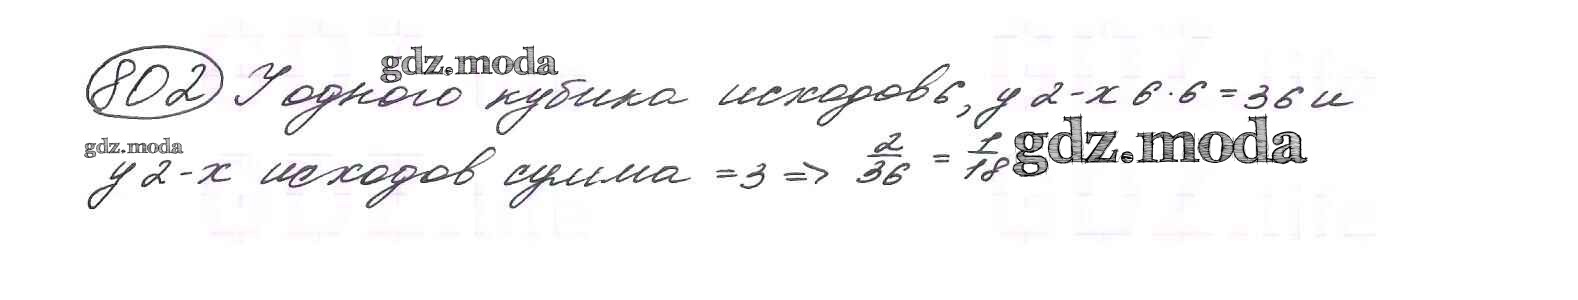 802 У одного кубика исходов 6, у 2-х 6·6 = 36 и
у 2-х исходов сумма = 3 => 2/36 = 1/18
gdz.moda
gdz.moda
gdz.moda